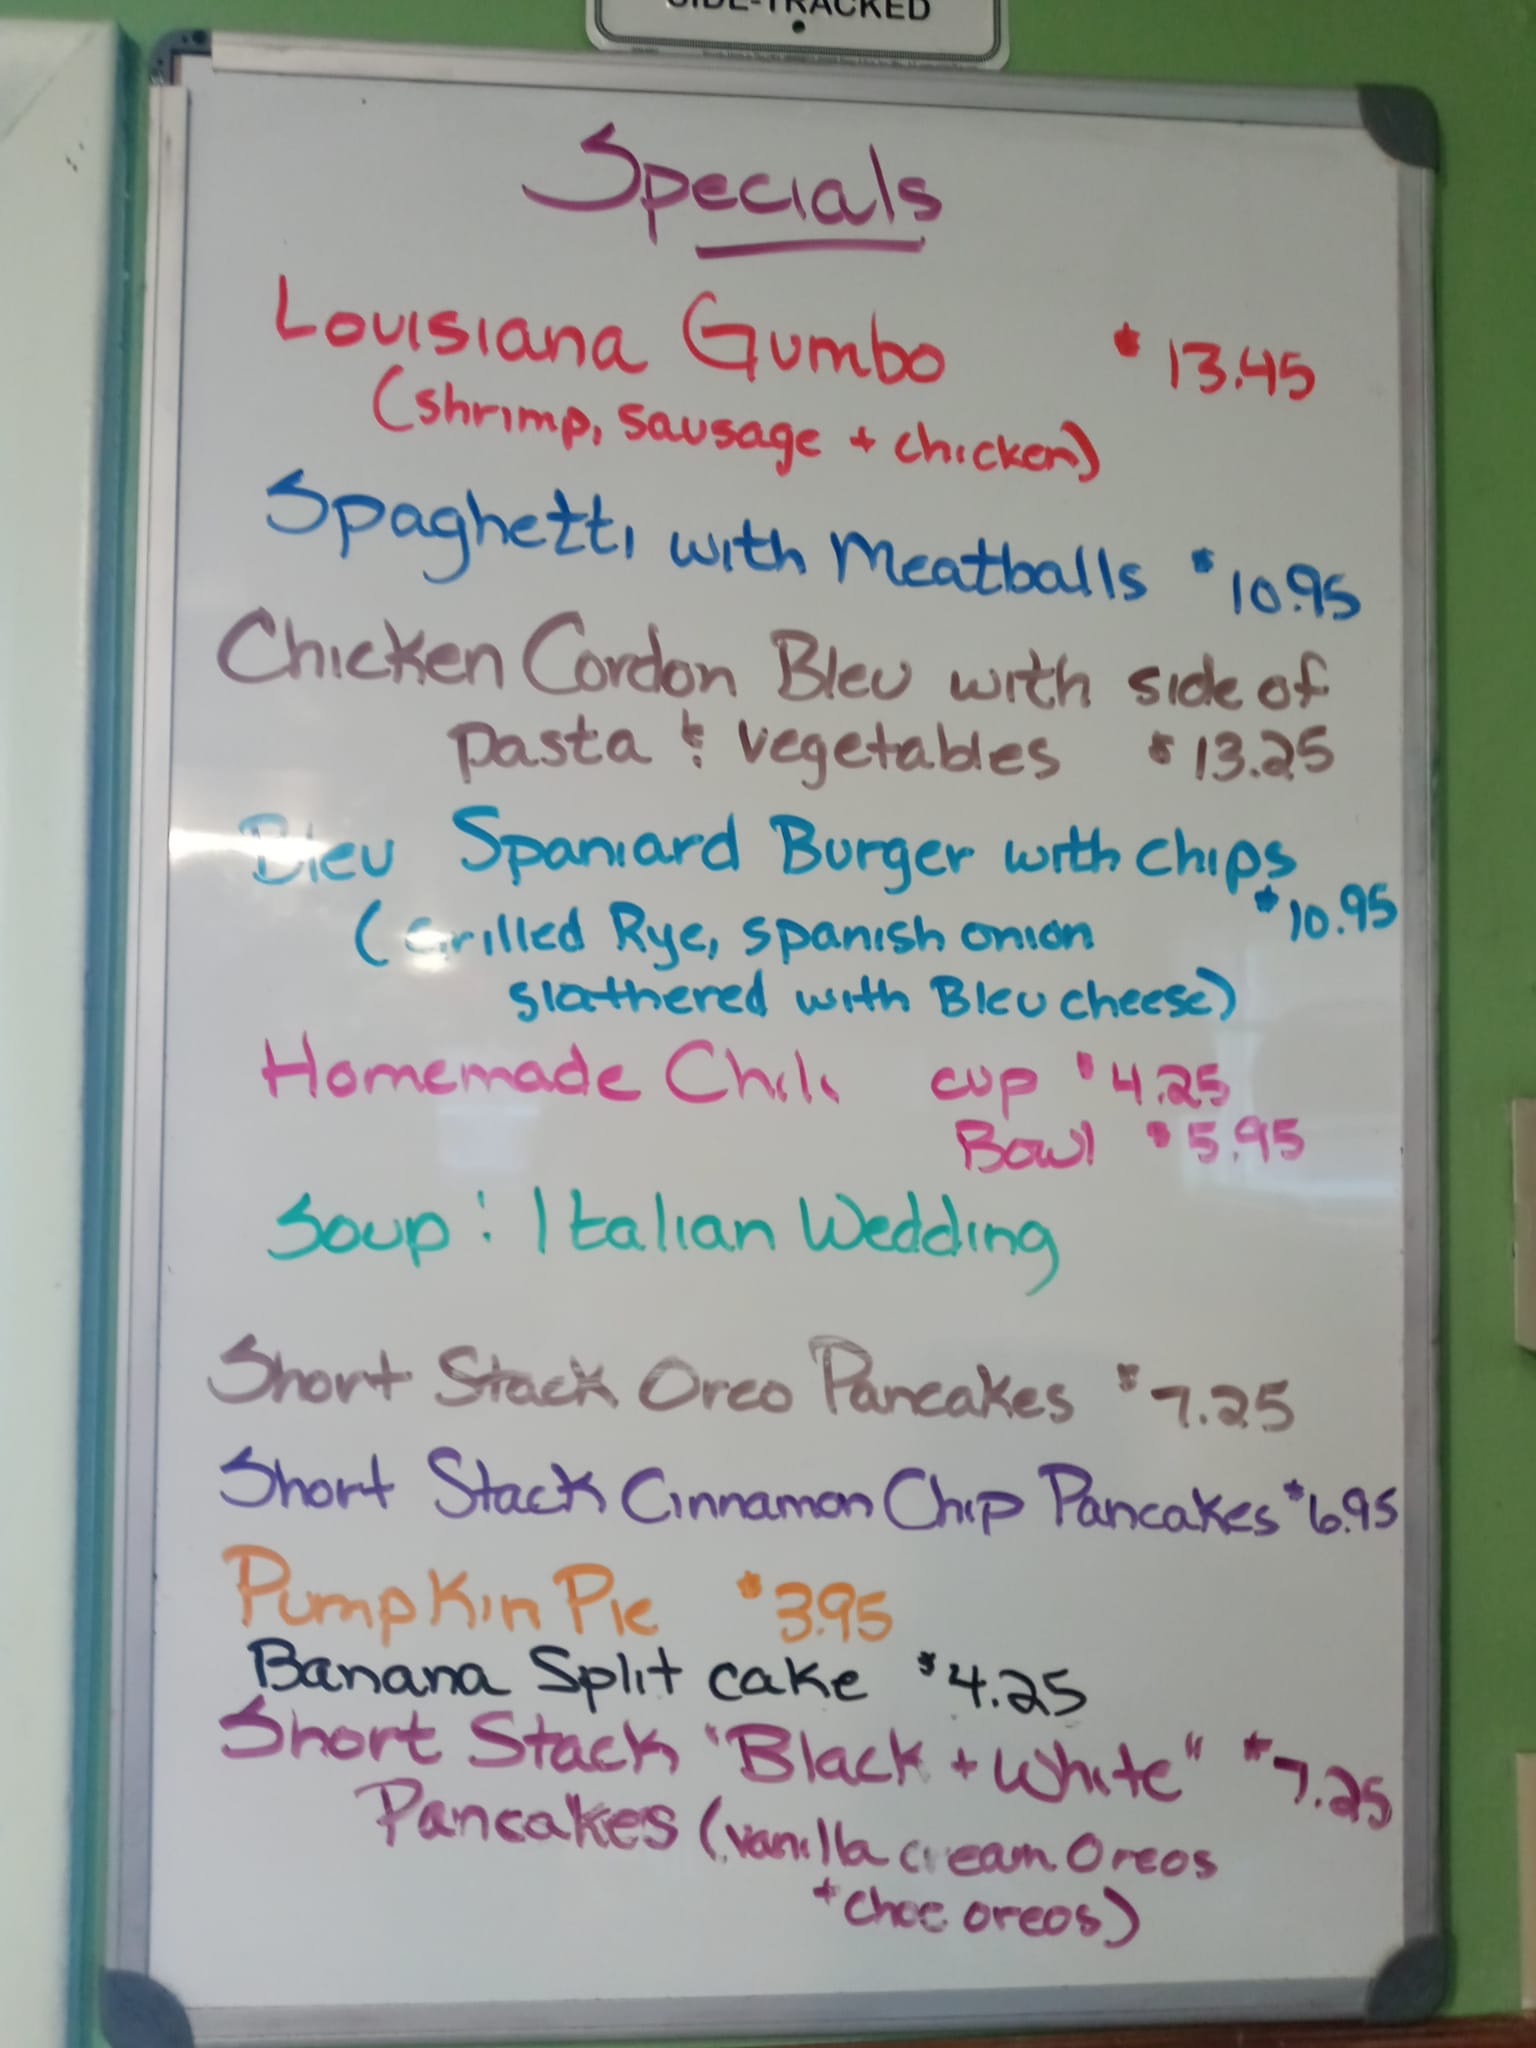 SIDE-TRACKED
Specials
Louisiana Gumbo $13.45
(shrimp, sausage + chicken)
Spaghetti with Meatballs $10.95
Chicken Cordon Bleu with side of
pasta & vegetables $13.25
Bleu Spaniard Burger with chips
$10.95
(Grilled Rye, spanish onion
slathered with Bleu cheese)
Homemade Chili cup $4.25
Bowl $5.95
Soup: Italian Wedding
Short Stack Oreo Pancakes $7.25
Short Stack Cinnamon Chip Pancakes $6.95
Pumpkin Pie $3.95
Banana Split cake $4.25
Short Stack "Black + White" $7.25
Pancakes (vanilla cream Oreos
+ choc oreos)